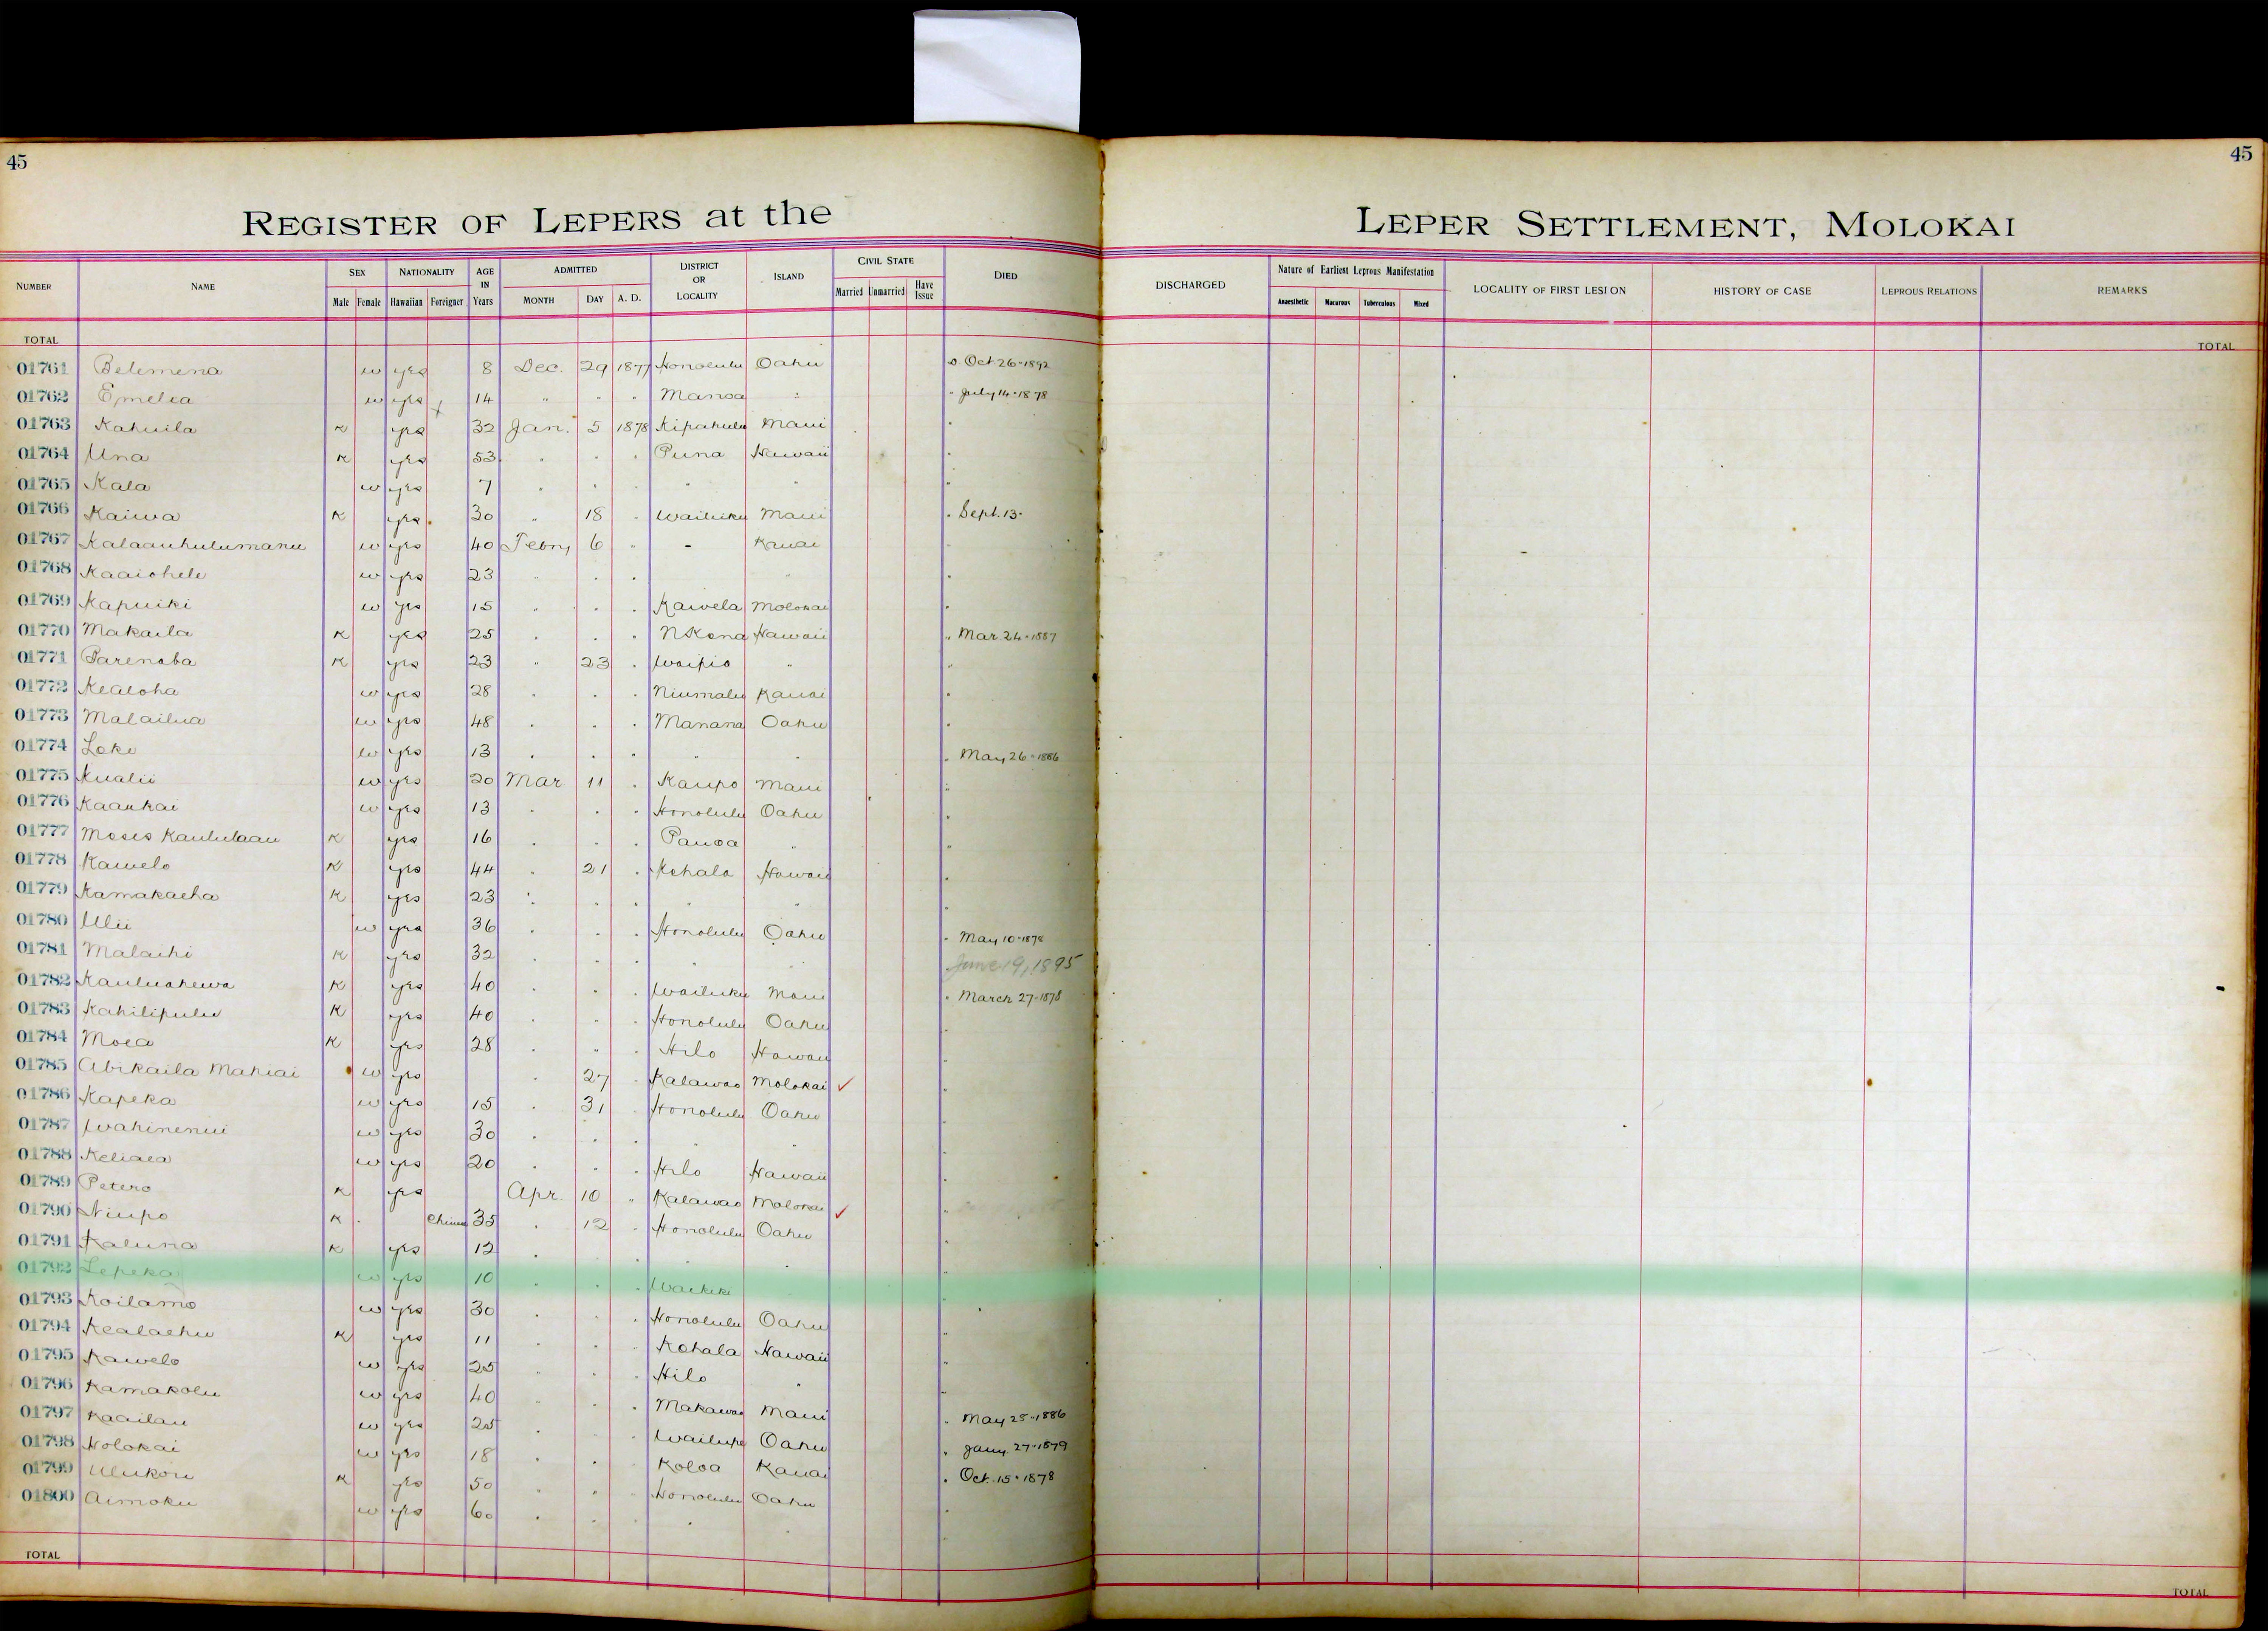 45
45
REGISTER OF LEPERS at the LEPER SETTLEMENT, MOLOKAI
NUMBER NAME SEX NATIONALITY AGE IN Years ADMITTED DISTRICT OR LOCALITY ISLAND CIVIL STATE DIED DISCHARGED Nature of Earliest Leprous Manifestation LOCALITY OF FIRST LESION HISTORY OF CASE LEPROUS RELATIONS REMARKS
Male Female Hawaiian Foreigner MONTH DAY A. D. Married Unmarried Have Issue Anaesthetic Macurous Tuberculous Mixed
TOTAL TOTAL
01761 Belemena w yes 8 Dec. 29 1877 Honolulu Oahu Oct 26-1892
01762 Emelia w yes 14 " " " Manoa " " July 14-1878
01763 Kahuila K yes 32 Jan. 5 1878 Kipahulu Maui
01764 Una K yes 53 " " " Puna Hawaii
01765 Kala w yes 7 " " " " "
01766 Kaiwa K yes 30 " 18 " Wailuku Maui " Sept. 13-
01767 Kalaauhulumanu w yes 40 Febry 6 " - Kauai
01768 Kaaiohele w yes 23 " " " "
01769 Kapuiki w yes 15 " " " Kawela Molokai
01770 Makaila K yes 25 " " " N Kona Hawaii " Mar 24-1887
01771 Parenaba K yes 23 " 23 " Waipio "
01772 Kealoha w yes 28 " " " Niumalu Kauai
01773 Malailua w yes 48 " " " Manana Oahu
01774 Loke w yes 13 " " " " " " May 26-1886
01775 Kualii w yes 20 Mar 11 " Kaupo Maui
01776 Kaaukai w yes 13 " " " Honolulu Oahu
01777 Moses Kaululaau K yes 16 " " " Pauoa "
01778 Kawelo K yes 44 " 21 " Kohala Hawaii
01779 Kamakaeha K yes 23 " " " " "
01780 Ulii w yes 36 " " " Honolulu Oahu " May 10-1878
01781 Malaihi K yes 32 " " " " " June 19, 1895
01782 Kauluahewa K yes 40 " " " Wailuku Maui " March 27-1878
01783 Kahilipulu K yes 40 " " " Honolulu Oahu
01784 Moea K yes 28 " " " Hilo Hawaii
01785 Abikaila Mahiai w yes " 27 " Kalawao Molokai ✓
01786 Kapeka w yes 15 " 31 " Honolulu Oahu
01787 Wahinenui w yes 30 " " " " "
01788 Keliaea w yes 20 " " " Hilo Hawaii
01789 Petero K yes Apr. 10 " Kalawao Molokai ✓
01790 Niupo K Chinese 35 " 12 " Honolulu Oahu
01791 Kaluna K yes 12 " " " " "
01792 Lepeka w yes 10 " " " Waikiki
01793 Koilamo w yes 30 " " " Honolulu Oahu
01794 Kealaehu K yes 11 " " " Kohala Hawaii
01795 Kawelo w yes 25 " " " Hilo "
01796 Kamakolu w yes 40 " " " Makawao Maui
01797 Kaailau w yes 25 " " " Wailupe Oahu " May 25-1886
01798 Holokai w yes 18 " " " Koloa Kauai " Jany. 27-1879
01799 Ulukou K yes 50 " " " Honolulu Oahu " Oct. 15-1878
01800 Aimoku w yes 60 " " " " "
TOTAL TOTAL